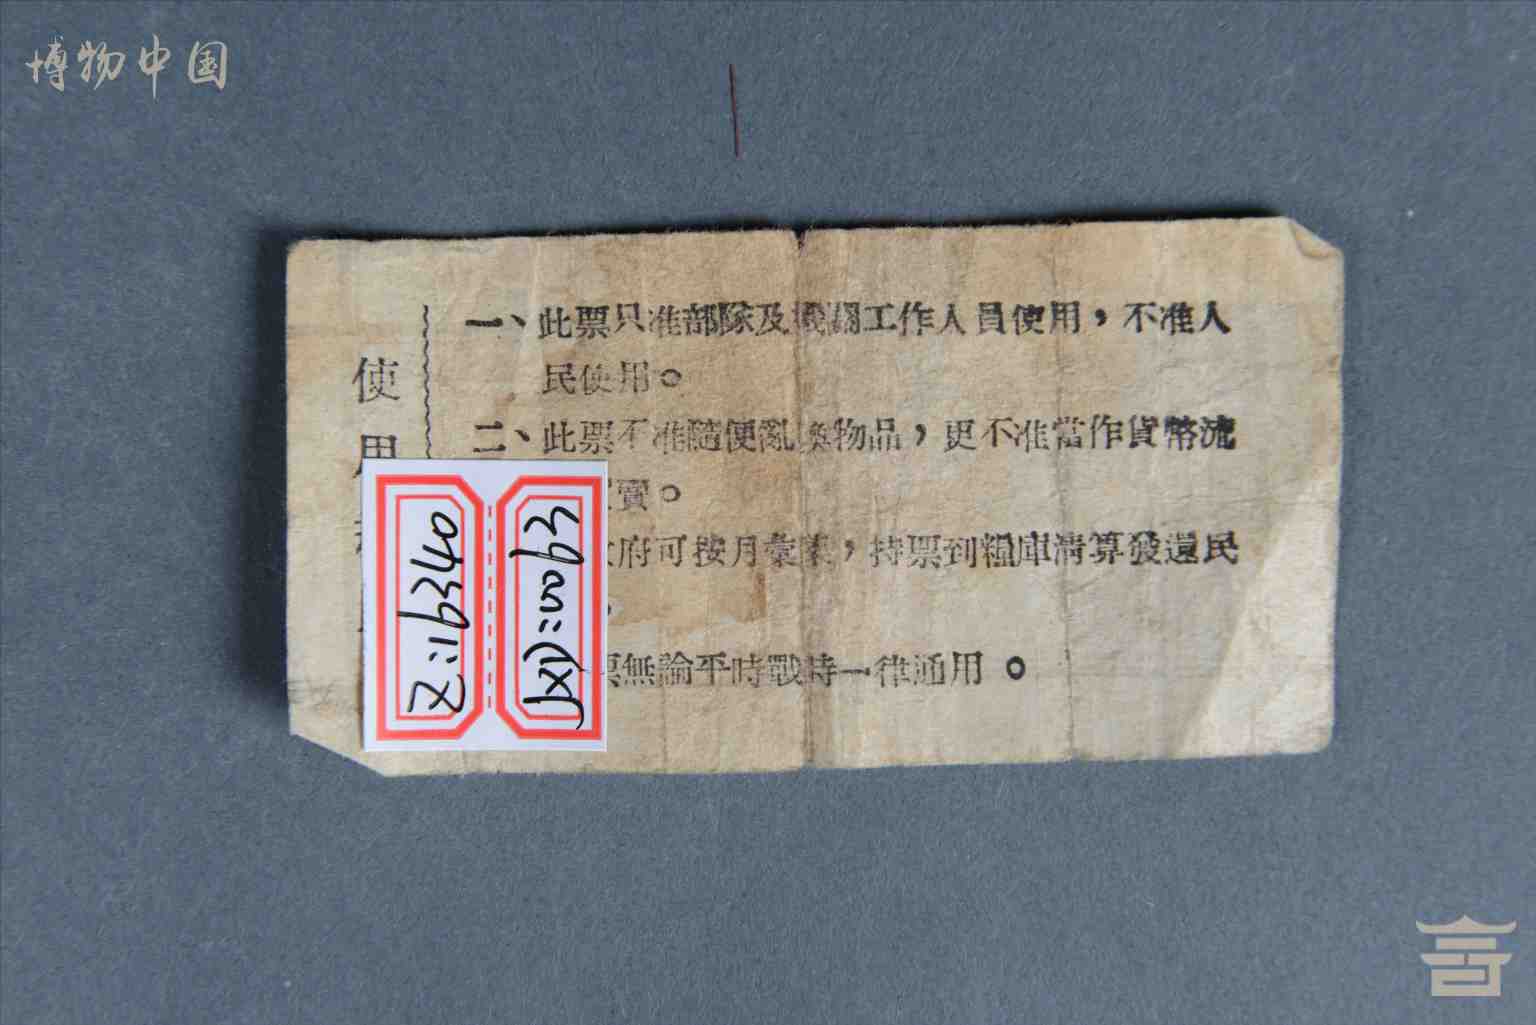 博物中国
使
用
一、此票只准部隊及機關工作人員使用，不准人
民使用。
二、此票不准隨便亂換物品，更不准當作貨幣流
賣。
府可按月彙集，持票到糧庫清算發還民
。
票無論平時戰時一律通用。
Z:16340
JXD:0063